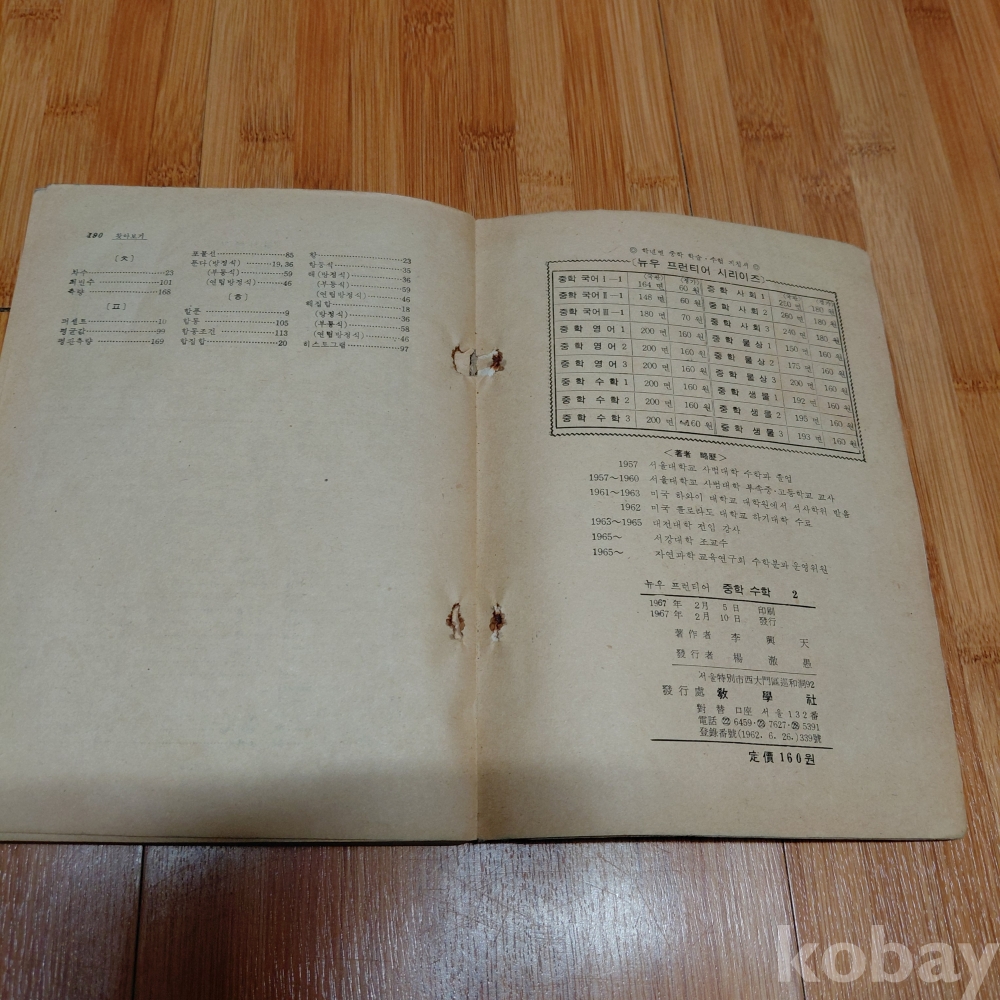 190 찾아보기
〔ㅊ〕
차수 23
최빈수 101
축량 168
〔ㅍ〕
퍼센트
평균값 98
평판측량 169
포물선 85
푼다(방정식) 19,36
(부등식) 59
(연립방정식) 46
〔ㅎ〕
할푼 9
합동 105
합동조건 113
합집합 20
항 23
항등식 35
해(방정식) 36
(부등식) 59
(연립방정식) 46
해집합 18
(방정식) 36
(부등식) 58
(연립방정식) 46
히스토그램 97
◎ 학년별 중학 학습·수험 지침서 ◎
(뉴우 프런티어 시리이즈)
중학 국어Ⅰ—1 164 면 60 원 중학 사회 1 210 면 180 원
중학 국어Ⅱ—1 146 면 60 원 중학 사회 2 260 면 180 원
중학 국어Ⅲ—1 180 면 70 원 중학 사회 3 240 면 180 원
중학 영어 1 200 면 160 원 중학 물상 1 150 면 160 원
중학 영어 2 200 면 160 원 중학 물상 2 175 면 160 원
중학 영어 3 200 면 160 원 중학 물상 3 200 면 160 원
중학 수학 1 200 면 160 원 중학 생물 1 192 면 160 원
중학 수학 2 200 면 160 원 중학 생물 2 195 면 160 원
중학 수학 3 200 면 160 원 중학 생물 3 193 면 160 원
<著者 略歷>
1957 서울대학교 사범대학 수학과 졸업
1957～1960 서울대학교 사범대학 부속중·고등학교 교사
1961～1963 미국 하와이 대학교 대학원에서 석사학위 받음
1962 미국 콜로라도 대학교 하기대학 수료
1963～1965 대전대학 전임 강사
1965～ 서강대학 조교수
1965～ 자연과학 교육연구회 수학분과 운영위원
뉴우 프런티어 중학 수학 2
1967 年 2月 5日 印刷
1967 年 2月 10日 發行
著作者 李興天
發行者 楊澈愚
서울特別市西大門區巡和洞92
發行處 敎學社
對替 口座 서울 132番
電話 ㉒ 6459·㉓ 7627·㉘ 5391
登錄番號(1962. 6. 26.)339號
定價 160원
kobay